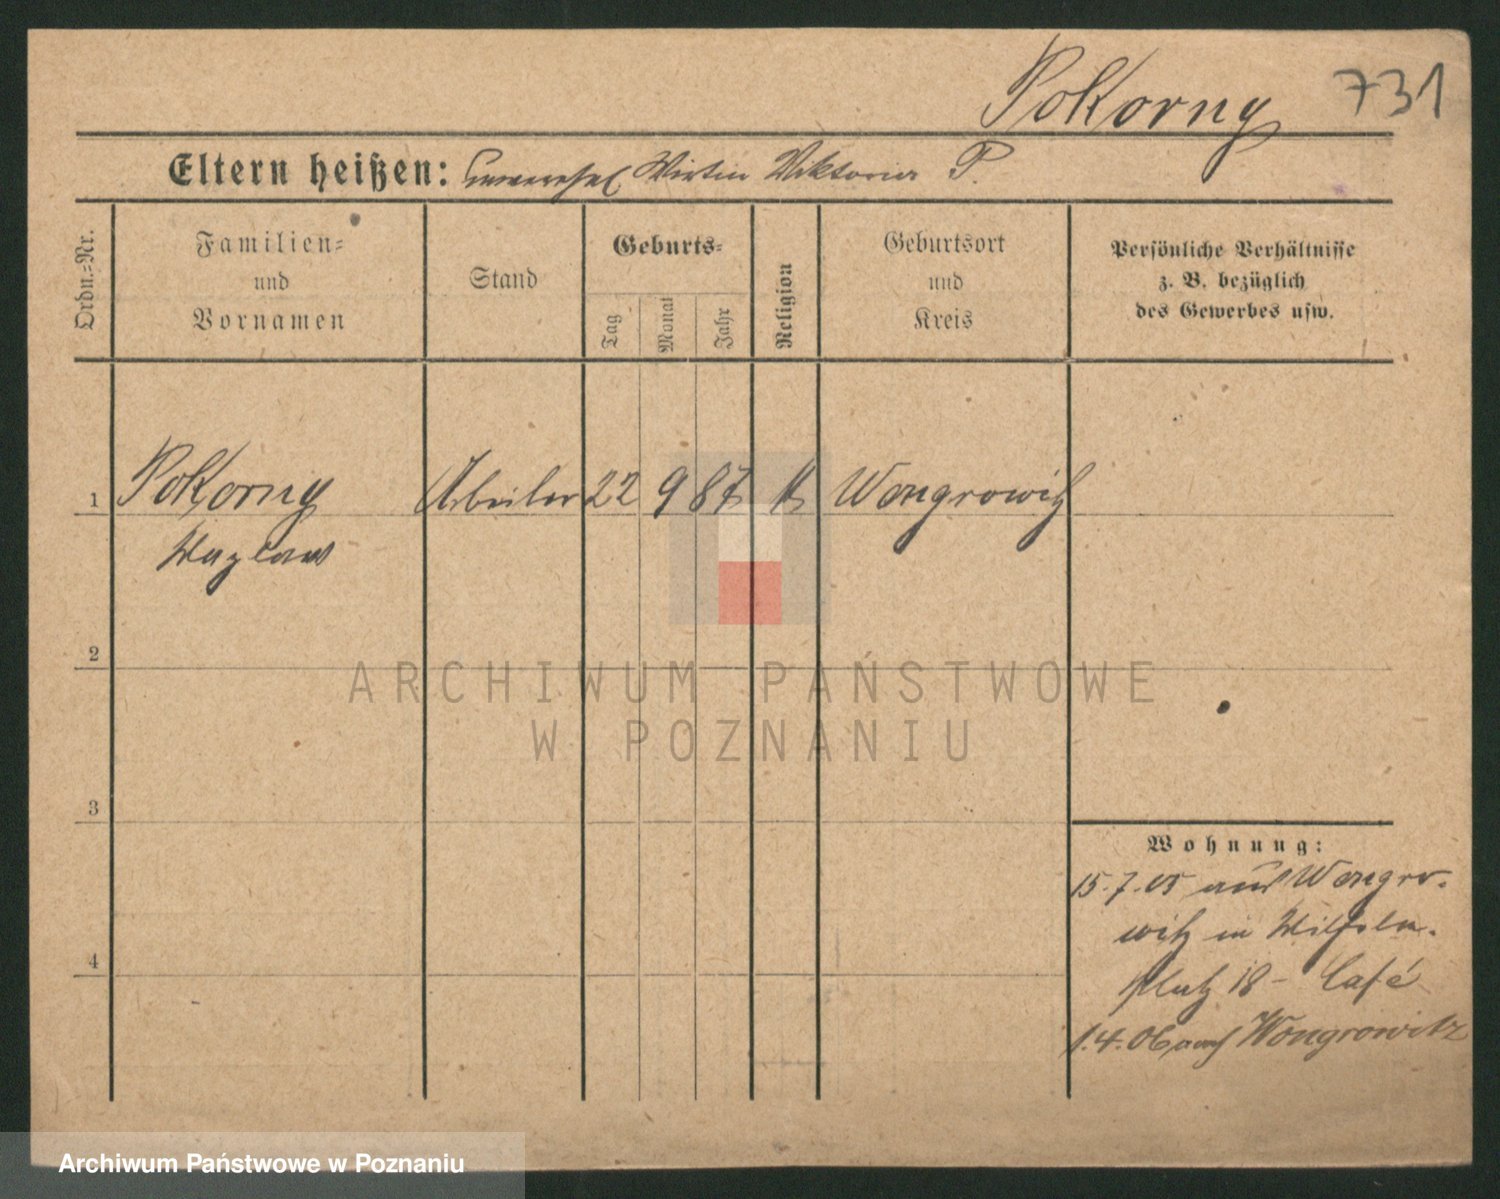 Pokorny 731
Eltern heißen: unverehel Wirtin Viktoria P.
Ordn.=Nr.
Familien=
und
Vornamen
Stand
Geburts=
Tag
Monat
Jahr
Religion
Geburtsort
und
Kreis
Persönliche Verhältnisse
z. B. bezüglich
des Gewerbes usw.
1 Pokorny Arbeiter 22 9 87 k Wongrowitz
Wazlaw
2
3
4
Wohnung:
15.7.05 aus Wongro-
witz in Wilhelm-
platz 18 - Café
1.4.06 nach Wongrowitz
ARCHIWUM PAŃSTWOWE
W POZNANIU
Archiwum Państwowe w Poznaniu